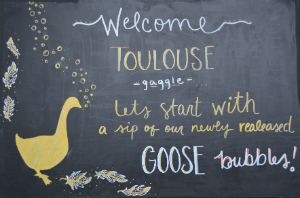 Welcome
TOULOUSE
-gaggle-
Lets start with
a sip of our newly realeased
GOOSE bubbles!